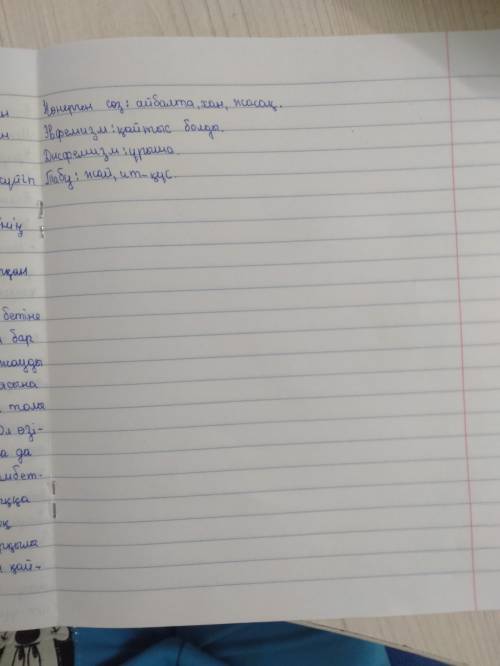 Көнерген сөз: айбалта, хан, жасақ.
Эвфемизм: қайтыс болды.
Дисфемизм: ұрыша.
Табу: жай, ит-құс.
сүйіп
нің
қан
бетіне
бар
жауды
ясына
толы
Ол өзі-
а да
мбет-
ққа
қ
рқылы
қай-